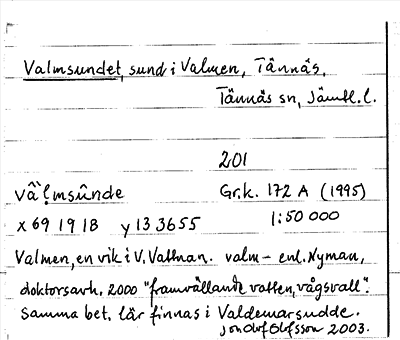 Valmsundet, sund i Valmen, Tännäs,
Tännäs sn, Jämtl. l.
201
vâ`l̥msûnde Gr.k. 172 A (1995)
x 69 19 18 y 13 3655 1:50 000
Valmen, en vik i V. Vattnan. valm- enl. Nyman,
doktorsavh. 2000 "framvällande vatten, vågsvall".
Samma bet. lär finnas i Valdemarsudde.
Jon Olof Olofsson 2003.